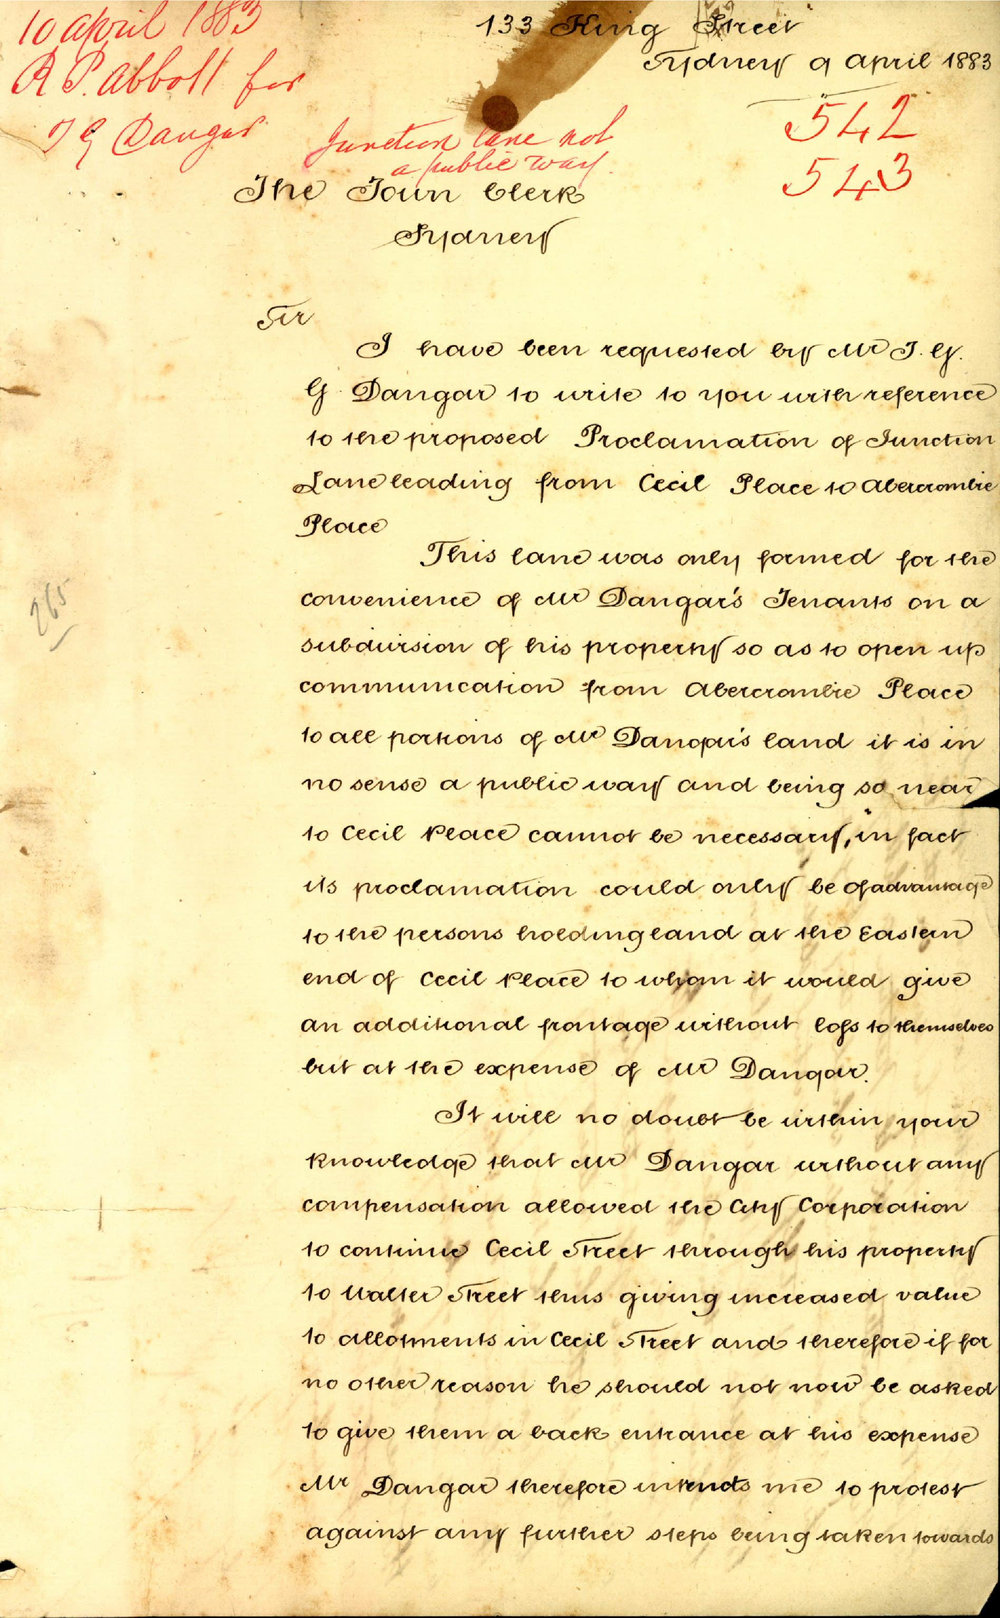 10 april 1883
R P. Abbott for
T G Dangar
133 King Street
Sydney 9 April 1883
542
543
Junction lane not
a public way
The Town Clerk
Sydney
Sir
I have been requested by Mr T. G.
G Dangar to write to you with reference
to the proposed Proclamation of Junction
Lane leading from Cecil Place to Abercrombie
Place
This lane was only formed for the
convenience of Mr Dangar's Tenants on a
subdivision of his property so as to open up
communication from Abercrombie Place
to all portions of Mr Dangar's land it is in
no sense a public way and being so near
to Cecil Place cannot be necessary, in fact
its proclamation could only be of advantage
to the persons holding land at the Eastern
end of Cecil Place to whom it would give
an additional frontage without loss to themselves
but at the expense of Mr Dangar.
It will no doubt be within your
knowledge that Mr Dangar without any
compensation allowed the City Corporation
to continue Cecil Street through his property
to Walter Street thus giving increased value
to allotments in Cecil Street and therefore if for
no other reason he should not now be asked
to give them a back entrance at his expense
Mr Dangar therefore me to protest
against any further steps being taken towards
265